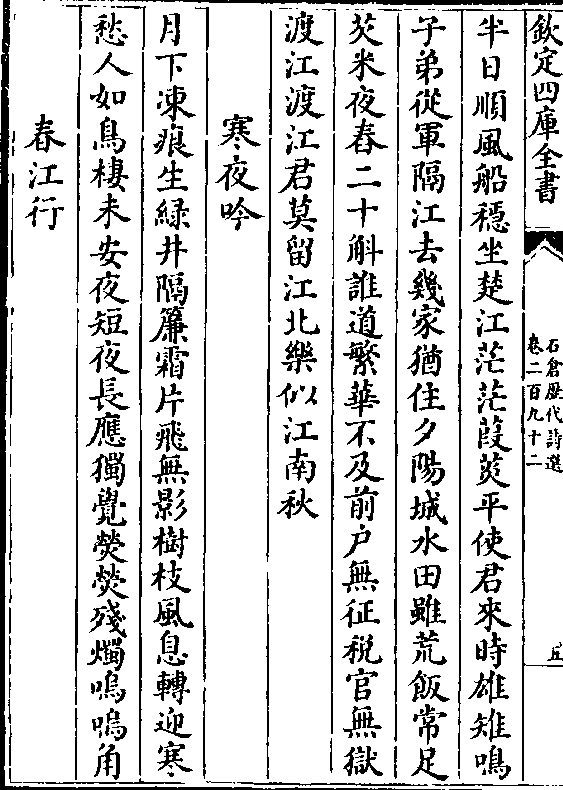 欽定四庫全書
石倉歷代詩選
卷二百九十二
五
半日順風船穩坐楚江茫茫葭菼平使君來時雄雉鳴
子弟從軍隔江去幾家猶住夕陽城水田雖荒飯常足
芡米夜舂二十斛誰道繁華不及前户無征稅官無獄
渡江渡江君莫留江北樂似江南秋
寒夜吟
月下凍痕生綠井隔簾霜片飛無影樹枝風息轉迎寒
愁人如鳥棲未安夜短夜長應獨覺熒熒殘燭嗚嗚角
春江行